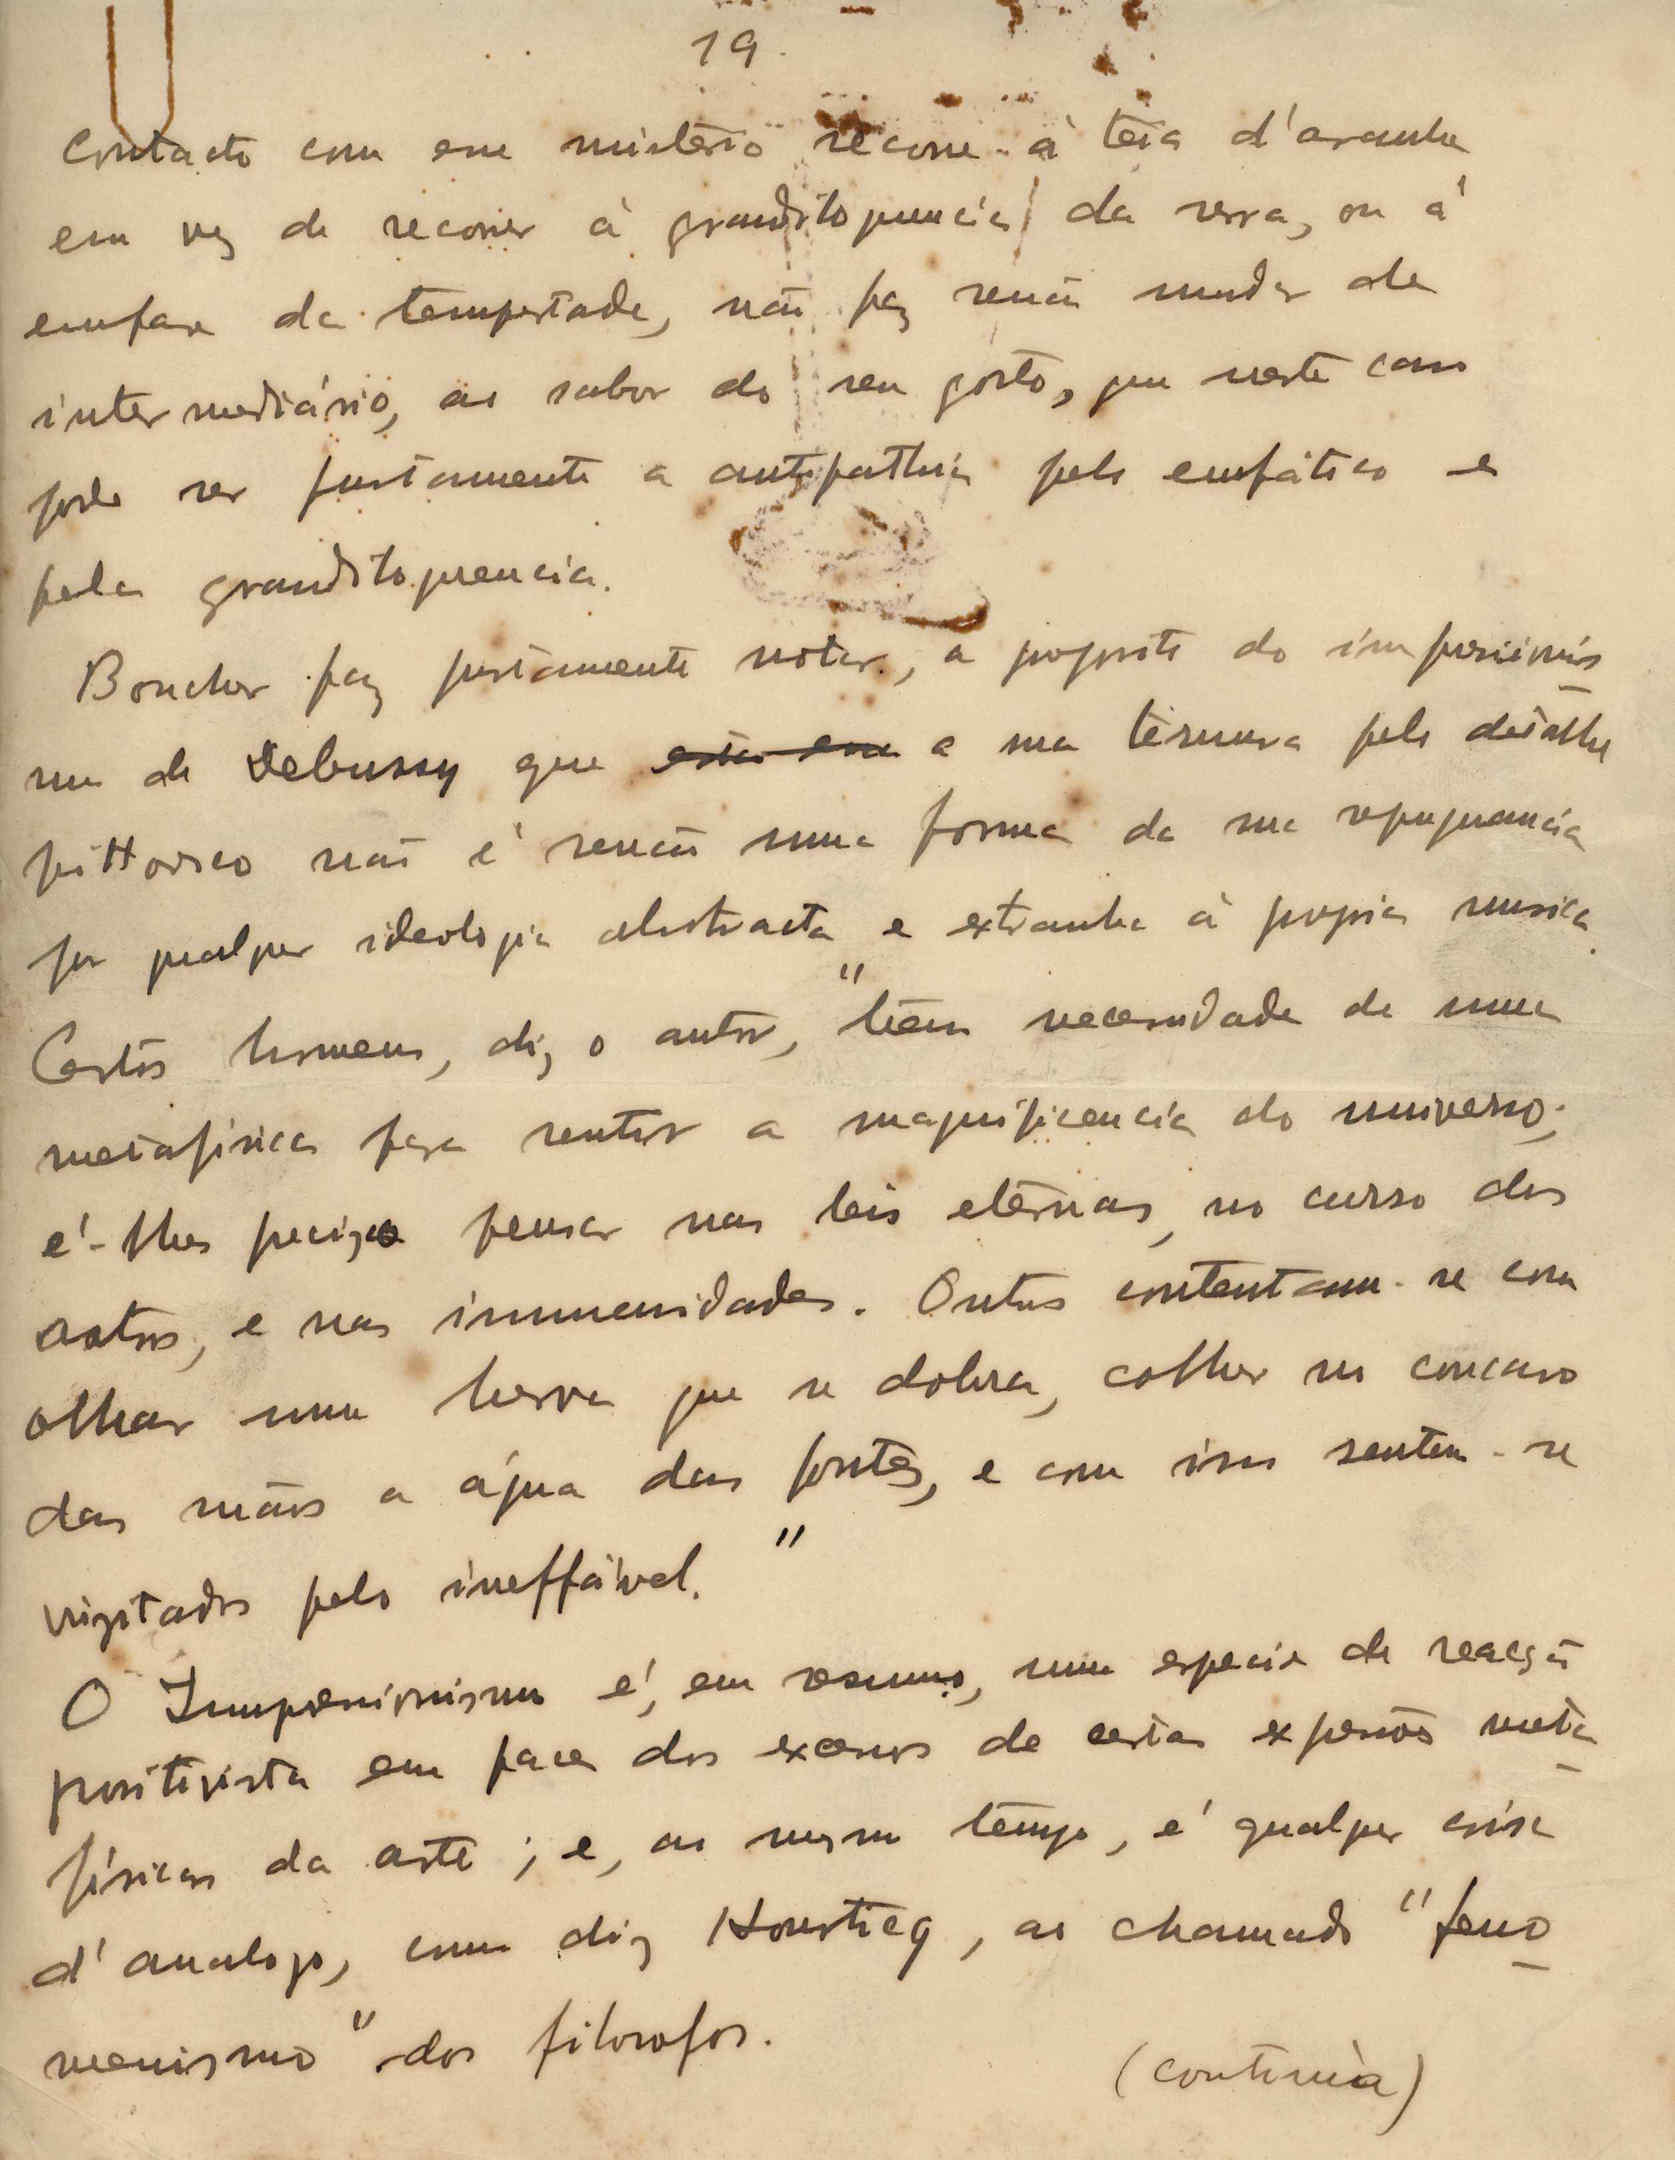 19.
contacto com esse mistério recorre à teia d'aranha
em vez de recorrer à grandiloquencia da serra, ou á
emfase da tempestade, não faz senão mudar de
intermediário, ao sabor do seu gosto, que neste caso
pode ser justamente a antipathia pelo emfático e
pela grandiloquencia.
Boucher faz justamente notar, a proposito do impressionis
mo de Debussy que a sua ternura pelo detalhe
pittoresco não é senão uma forma da sua repugnancia
por qualquer ideologia abstracta e extranha á propria musica.
Certos homens, diz o autor, "têem necessidade de uma
metafisica para sentir a magnificencia do universo;
é-lhes preciso pensar nas leis eternas, no curso dos
astros, e nas immensidades. Outros contentam-se com
olhar uma herva que se dobra, colher no concavo
das mãos a água das fontes, e com isso sentem-se
visitados pelo ineffável."
O Impressionismo é, em resumo, uma especie de reacção
positivista em face dos excessos de certas expressões meta
fisicas da arte; e, ao mesmo tempo, é qualquer coisa
d'analogo, como diz Hourticq, ao chamado "feno
menismo" dos filosofos.
(continúa)